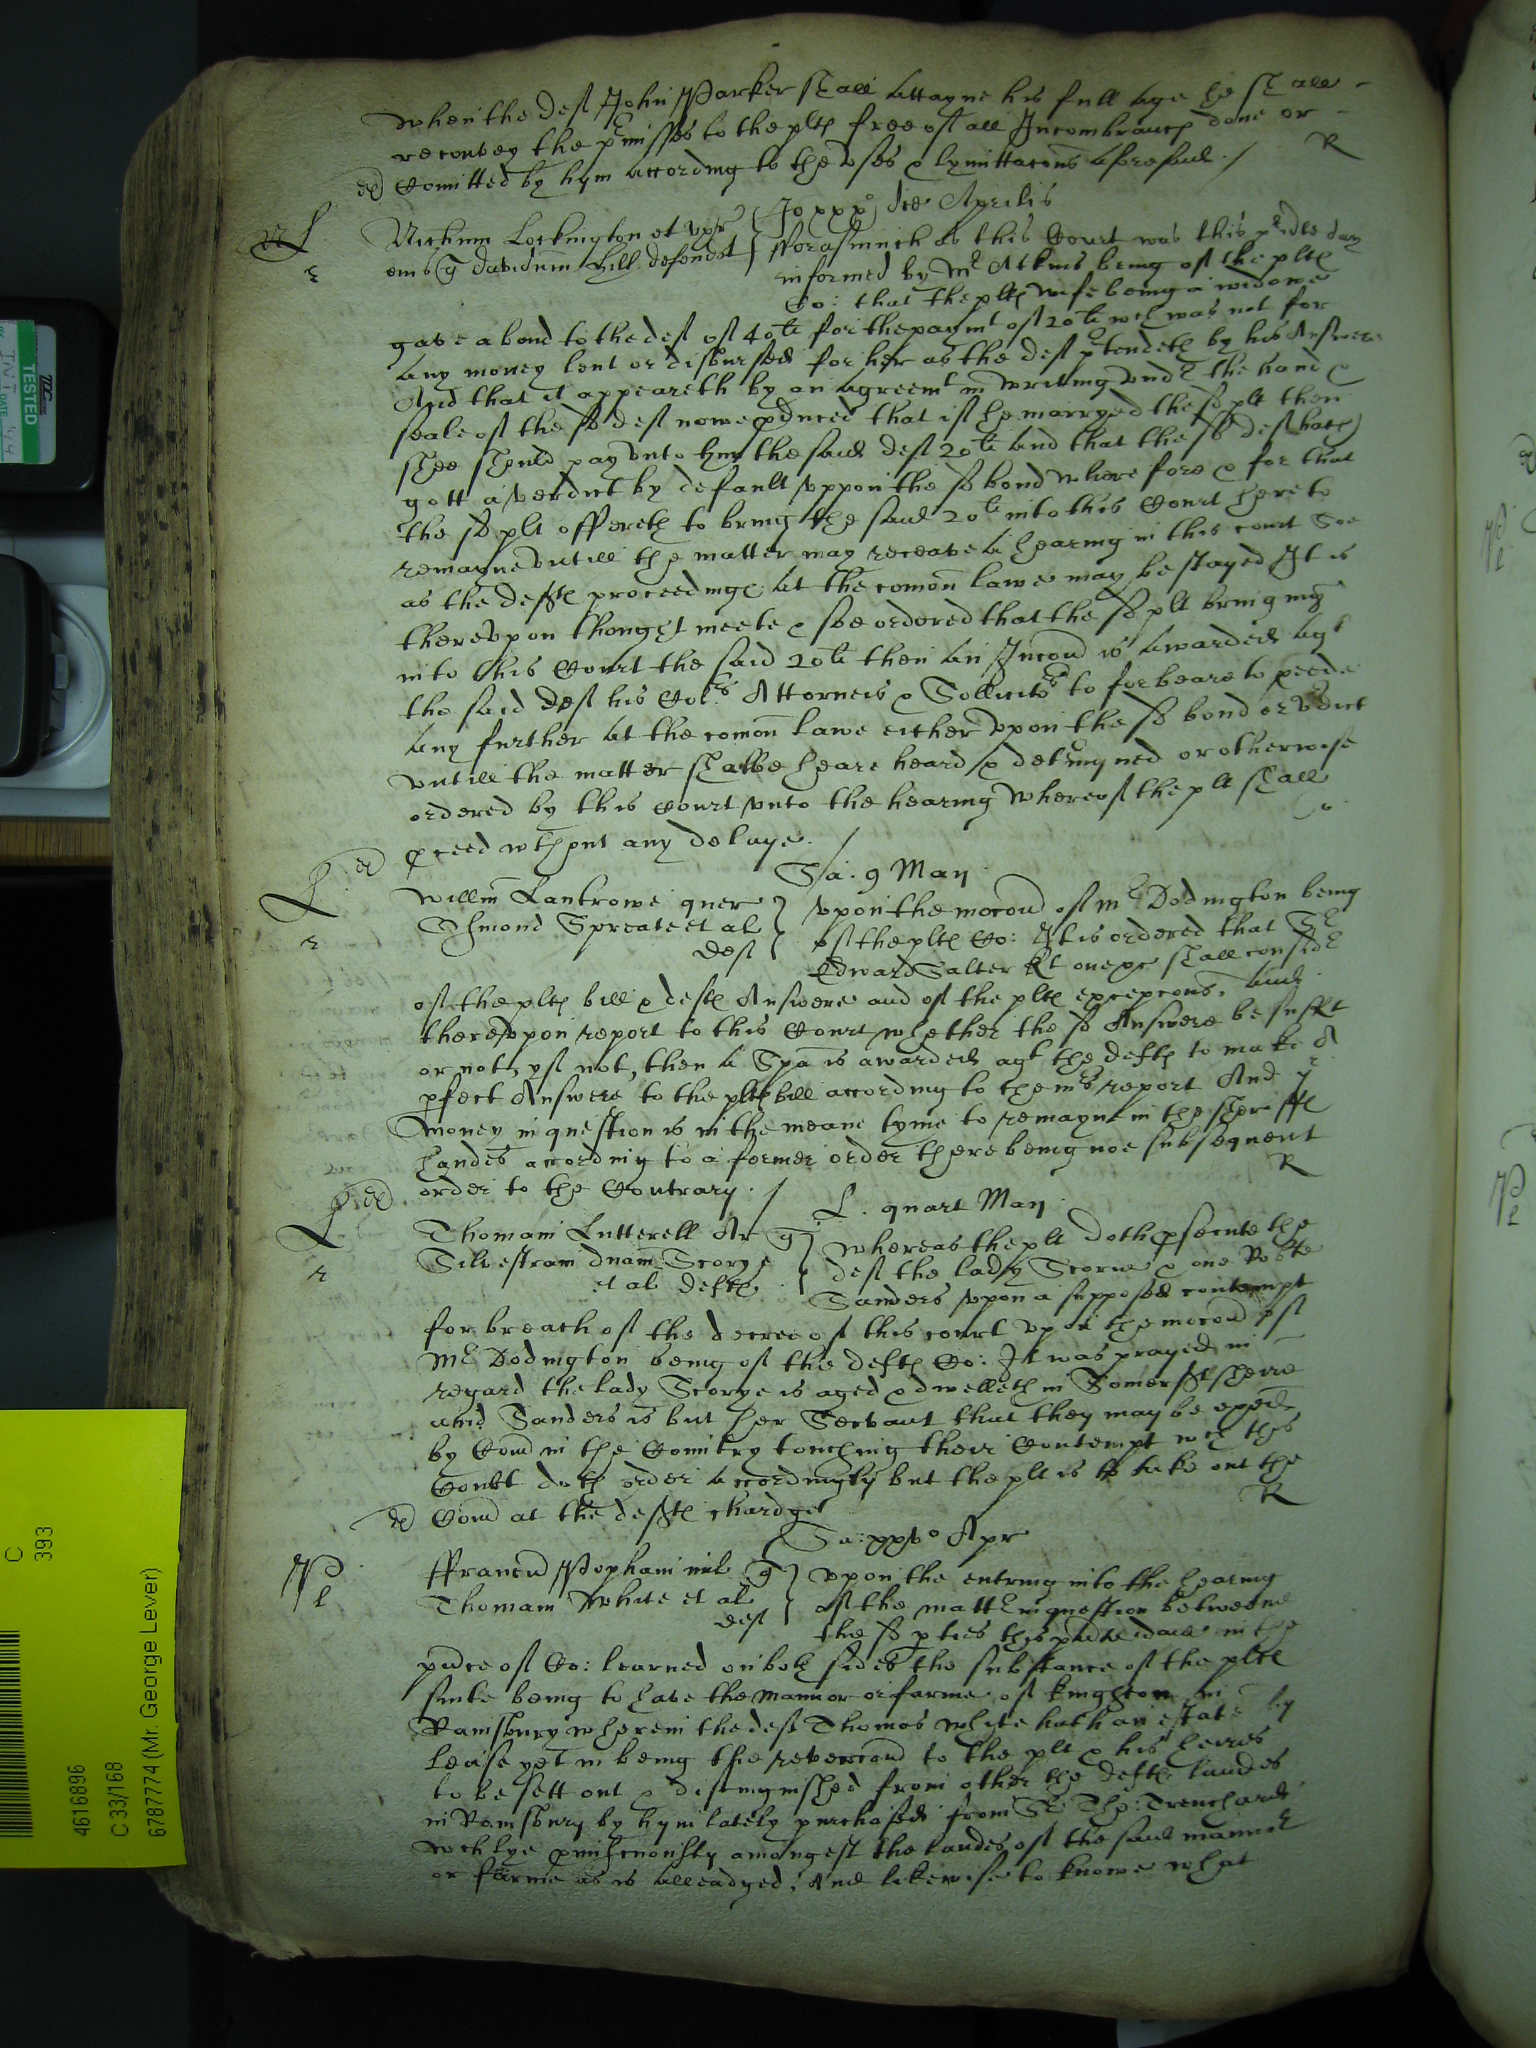 when the def John Parker shall attayne his full age he shall
reconvey the pmisses to the plts free of all Incombrances done or
Comitted by hym according to the vses & lymittacons aforesaid. / R
Jo xxx die Aprilis
Lockington et vxr
eius q Davidum Hill defendt } fforasmuch as this Court was this pnte day
informed by Mr Atkins being of the plts
Co: that the plts wife being a widowe
gave a bond to the def of 40li for the paymt of 20li wch was not for
any money lent or disbursed for her as the def ptendeth by his Answere
And that it appeareth by an agreemt in writing vnder the hand &
seale of the sd def nowe pduced that if he marryed the sd plt then
shee should pay vnto him the said def 20li and that the sd def hath
gott a verdict by default vppon the sd bond wherefore & for that
the sd plt offereth to bring the said 20li into this Court here to
remayne vntill the matter may receave a hearing in this court Soe
as the defts proceedings at the comon lawe may be stayed It is
therevpon thought meete & soe ordered that the sd plt bringing
into this Court the said 20li then an Iniuncon is awarded agt
the said def his Colrs Attorneis & Sollicitrs to forbeare to pceede
any further at the comon lawe either vpon the sd bond or vdict
vntill the matter shalbe heare heard & determyned or otherwise
ordered by this Court vnto the hearing whereof the plt shall
pceed wthout any delaye. /
Sa: 9 Maij
Willm Lankrowe quer
Esmond Spreate et al
def } vpon the mocon of Mr Dodington being
of the plts Co: It is ordered that Sr
Edward Salter Kt one &c shall consider
of the plts bill & defts Answere and of the plts excepcons, And
therevpon report to this Court whether the sd Answere be suffit
or not, yf not, then a Spa is awarded agt the defts to make a
pfect Answere to the plts bill according to the mrs report And ye
money in question is in the meane tyme to remayne in the sheriffs
handes according to a former order there being noe subsequent
order to the Contrary. / R
L. quart Maij
Thomam Lutterell Ar q
Silvestram dnam Scorye
et al defts } whereas the plt doth psecute the
def the lady Scorye & one Robte
Sanders vpon a supposed contempt
for breach of the decree of this court vpon the mocon of
Mr Dodington being of the defts Co: It was prayed in
regard the lady Scorye is aged & dwelleth in Somersetsheire
and Sanders is but her Servant that they may be exped
by Comn in the Countrey touching their Contempt wch this
Court doth order accordingly but the plt is to take out the
Comn at the defts chardges R
Sa: xxvo Apr
ffrancu Popham mil q
Thomam White et al
def } vpon the entring into the hearing
of the matter in question betweene
the sd pties this pnte daie in the
pnce of Co: learned on both sides the substance of the plts
suite being to have the Mannor or farme of Kinghton in
Ramsbury wherein the def Thomas White hath an estate by
lease yet in being the revercon to the plt & his heires
to be sett out & distinguished from other the defts landes
in Ramsbury by hym lately purchased from Sr Tho: Trenchard
wch lye pmiscuously amongest the landes of the said mannor
or farme as is alleadged, And likewise to knowe what
TESTED
C
393
4616896
C 33/168
6787774 (Mr. George Lever)